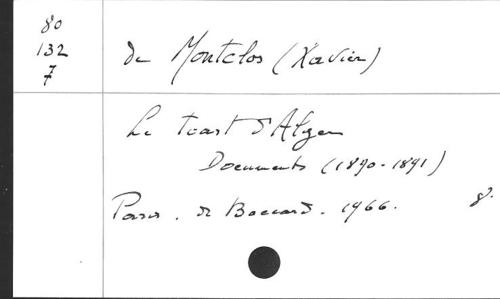 80
132
7
de Montclos (Xavier)
Le toast d'Alger
Documents (1890-1891)
Paris. de Boccard. 1966. 8.